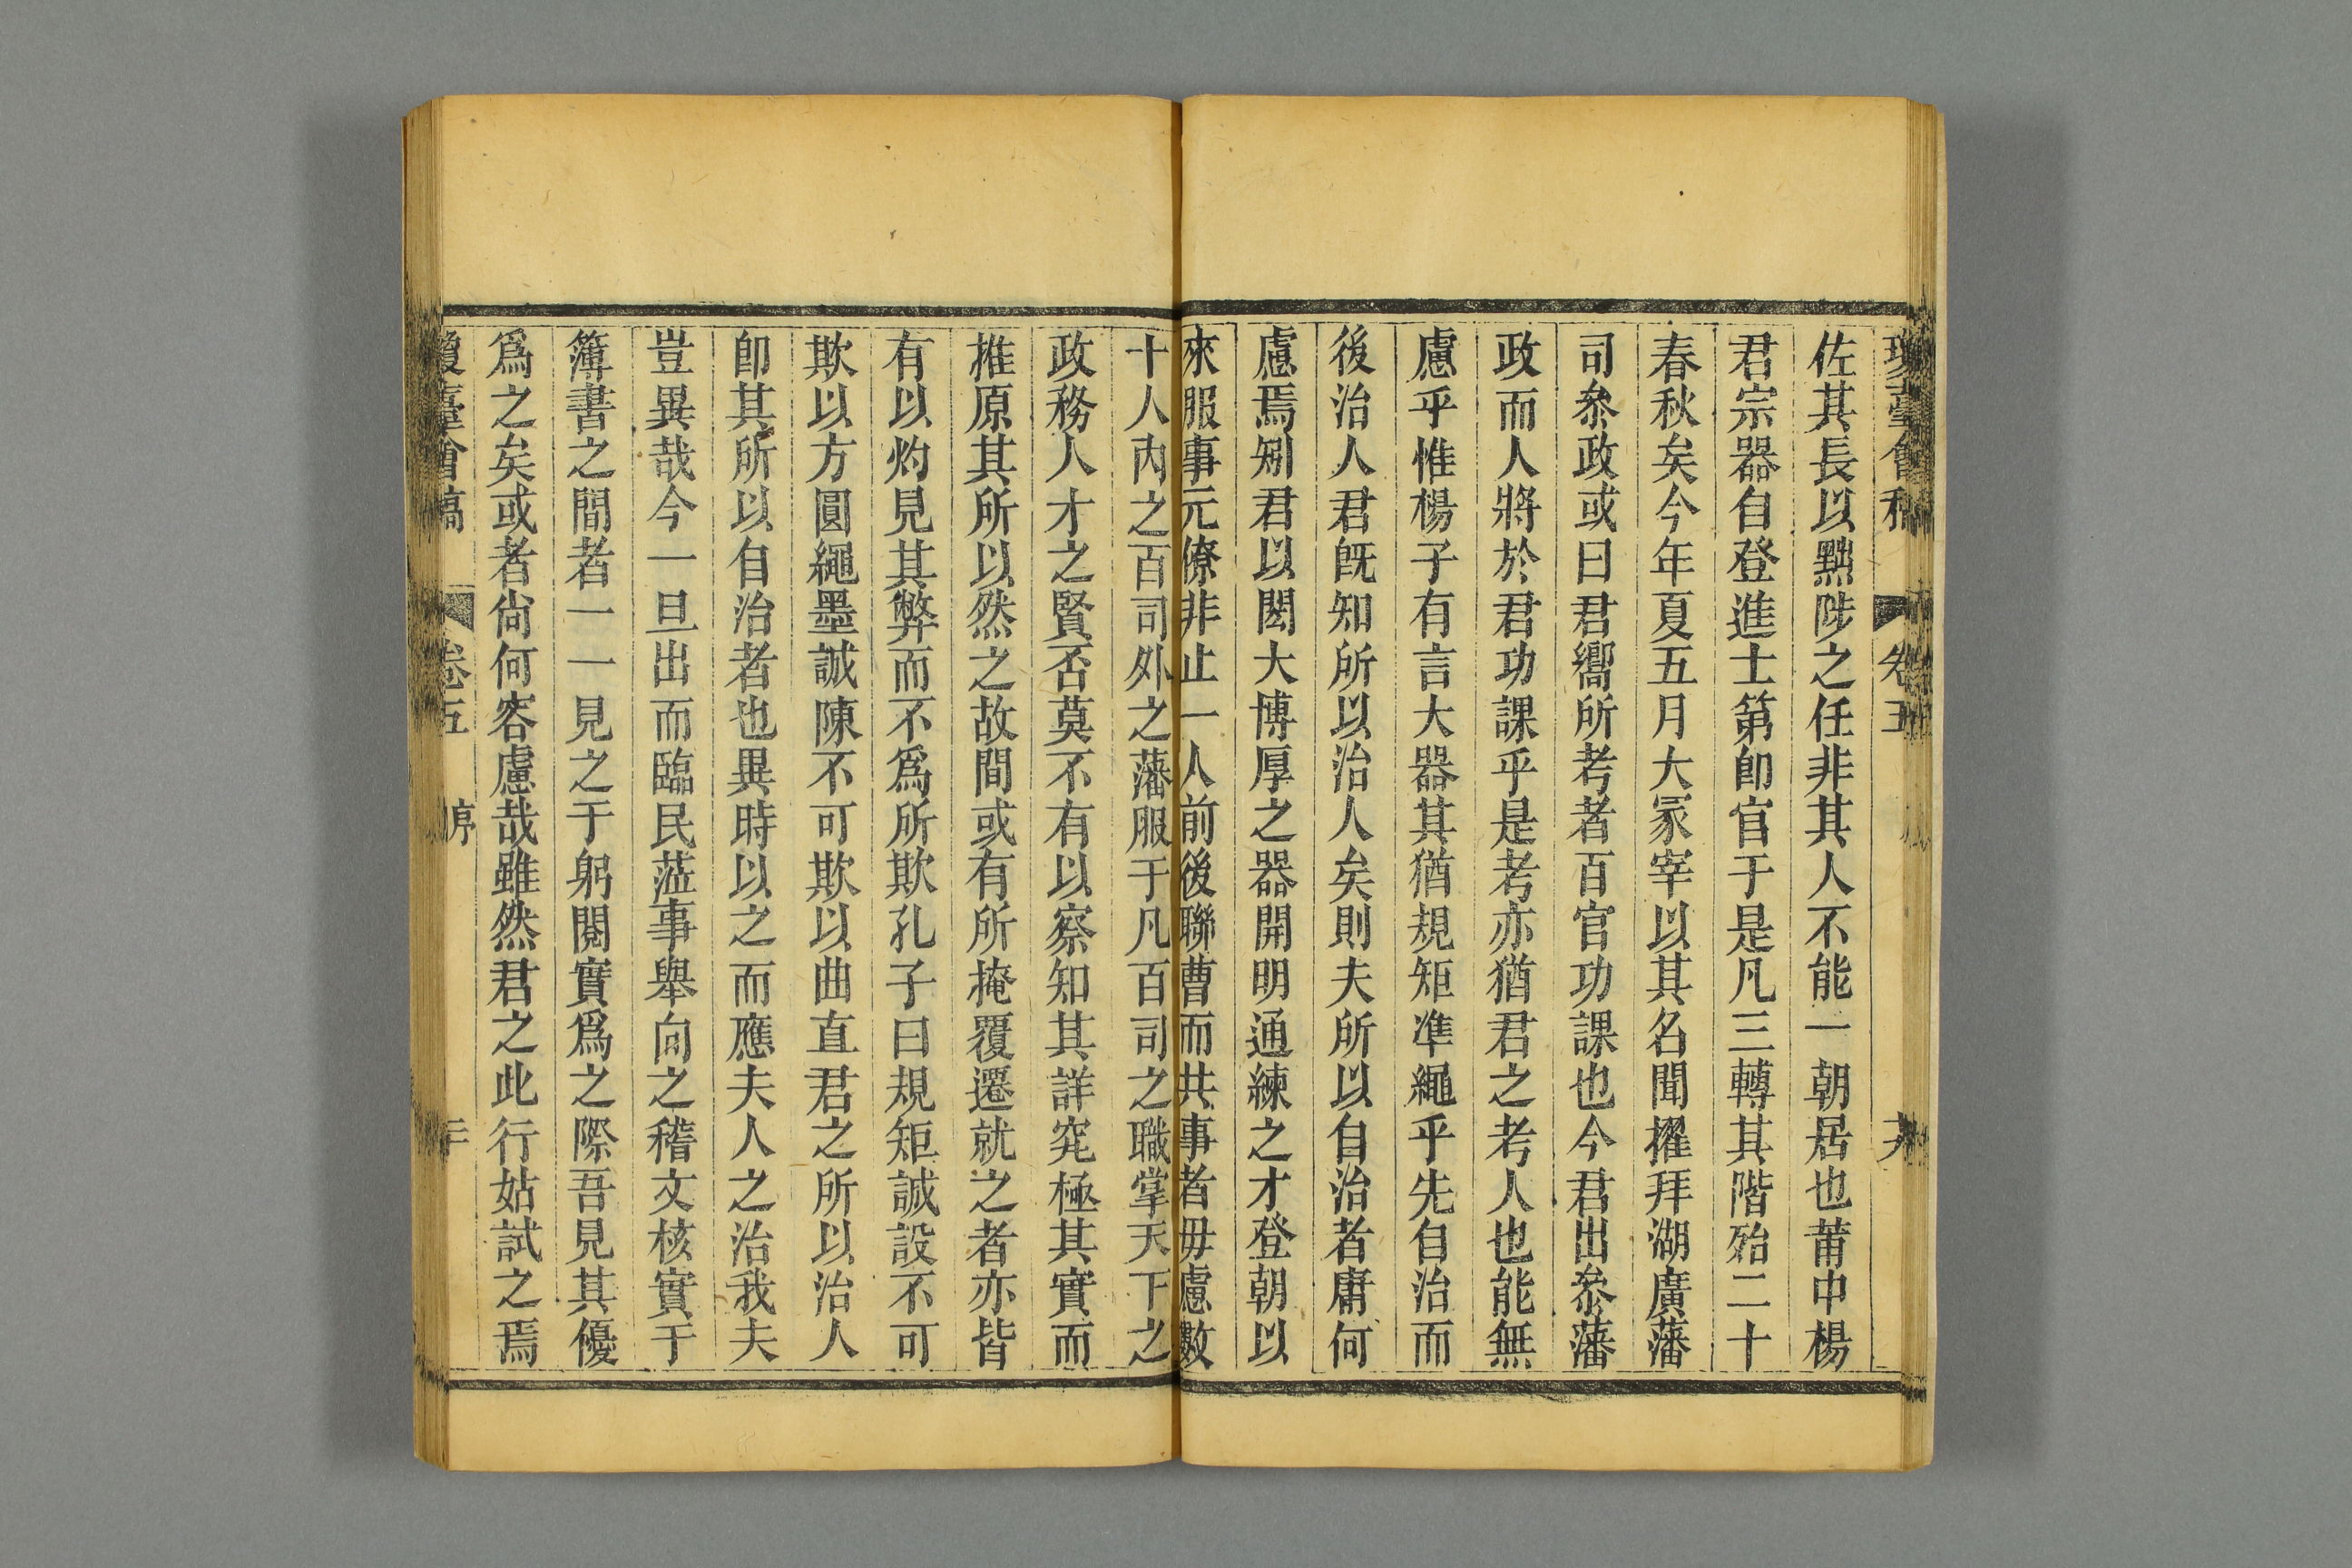 佐其長以黜陟之任非其人不能一朝居也莆中楊
君宗器自登進士第卽官于是凡三轉其階殆二十
春秋矣今年夏五月大冡宰以其名聞擢拜湖廣藩
司叅政或曰君嚮所考者百官功課也今君出叅藩
政而人將於君功課乎是考亦猶君之考人也能無
慮乎惟楊子有言大器其猶規矩凖繩乎先自治而
後治人君旣知所以治人矣則夫所以自治者庸何
慮焉矧君以閎大博厚之器開明通練之才登朝以
來服事元僚非止一人前後聯曹而共事者毋慮數
十人內之百司外之藩服于凡百司之職掌天下之
政務人才之賢否莫不有以察知其詳究極其實而
推原其所以然之故間或有所掩覆遷就之者亦皆
有以灼見其弊而不爲所欺孔子曰規矩誠設不可
欺以方圓繩墨誠陳不可欺以曲直君之所以治人
卽其所以自治者也異時以之而應夫人之治我夫
豈異哉今一旦出而臨民蒞事舉向之稽文核實于
簿書之間者一一見之于躬閱實爲之際吾見其優
爲之矣或者尙何容慮哉雖然君之此行姑試之焉
瓊臺會稿 卷五 序